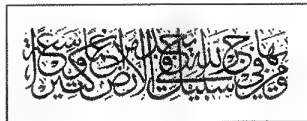 ومن يهاجر في سبيل الله يجد في الأرض مراغما كثيرا وسعة